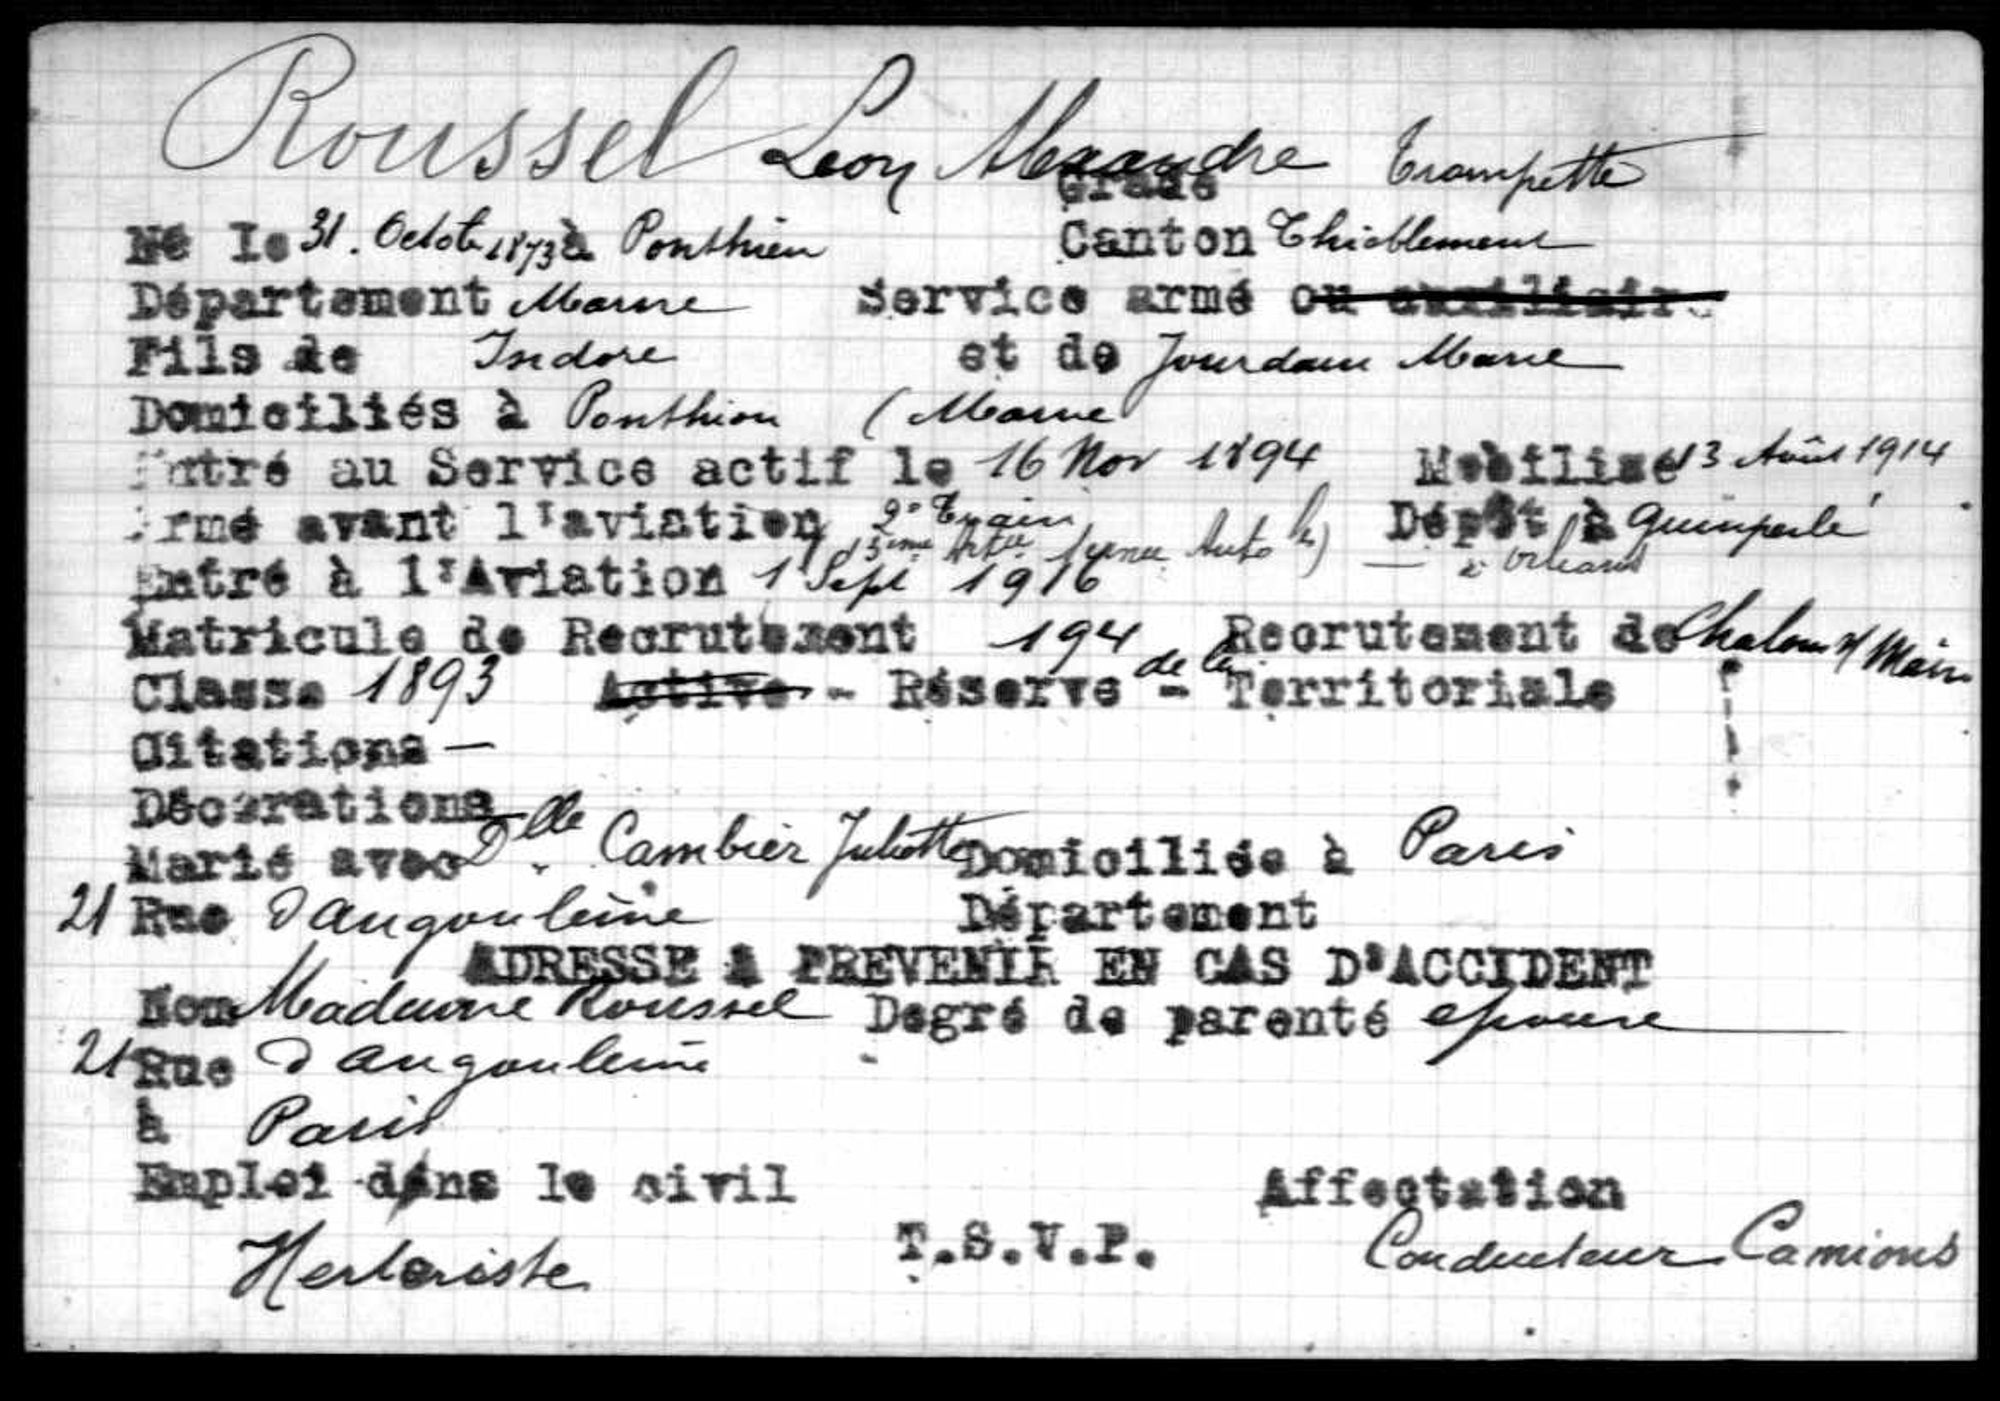 Roussel Léon Alexandre Grade Trompette
Né le 31. Octob 1873 à Ponthion Canton Thiéblemont
Département Marne Service armé ou auxiliaire
Fils de Isidore et de Jourdain Marie
Domiciliés à Ponthion (Marne
Entré au Service actif le 16 Nov 1894 Mobilisé 13 Août 1914
Armé avant l'aviation 2e Train Dépôt à Quimperlé
13ème Artie Auto — à Orléans
Entré à l'Aviation 1 Sept 1916
Matricule de Recrutement 194 Recrutement de Chalons s/ Marn
Classe 1893 Active - Réserve de la - Territoriale
Citations —
Décorations
Marié avec Dlle Cambier Juliette Domiciliée à Paris
21 Rue d'angoulême Département
ADRESSE A PREVENIR EN CAS D'ACCIDENT
Nom Madame Roussel Degré de parenté epouse
21 Rue d'angoulême
à Paris
Emploi dans le civil Affectation
Herboriste T.S.V.P. Conducteur Camions